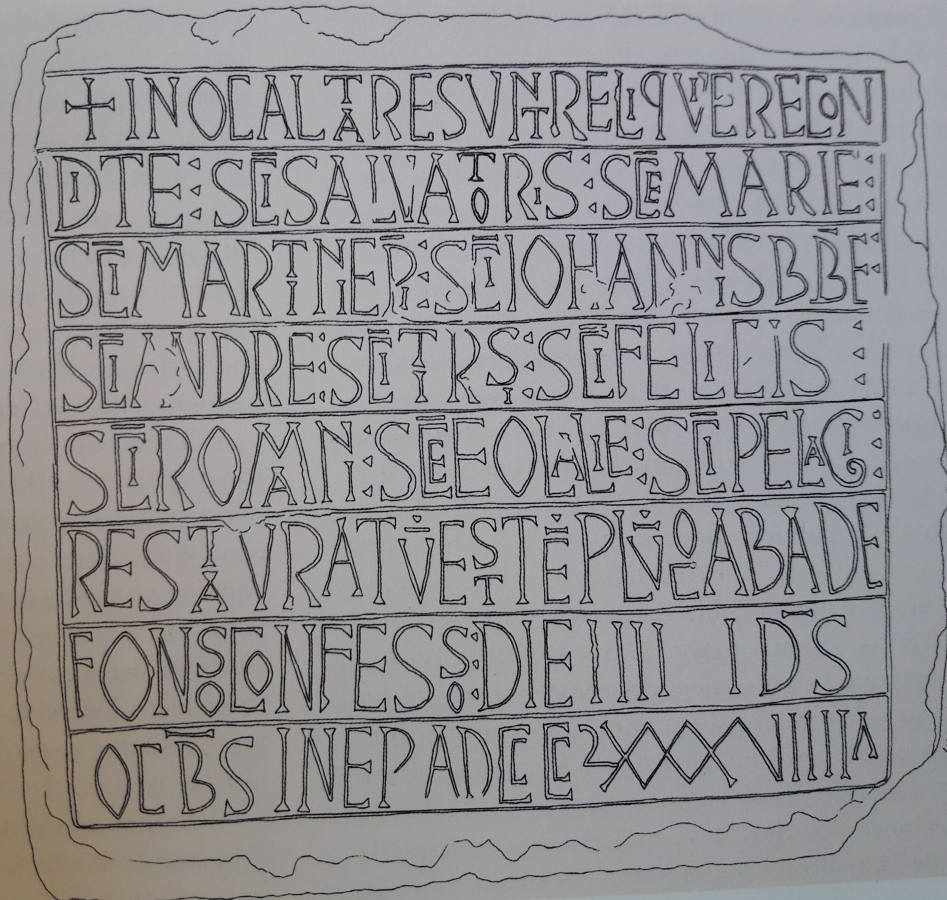 + IN OC ALTARE SVNT RELIQVIE RECON
DITE : SC̅I SALVATORIS : SC̅E MARIE :
SC̅I MARTINI EP̅I : SC̅I IOHANNIS BB̅E :
SC̅I ANDRE : SC̅I TIRSI : SC̅I FELICIS :
SC̅I ROMANI : SC̅E EOLALIE : SC̅I PELAGI :
RESTAVRATV̅ EST TE̅PLV̅ OC ABADE
FONSO CONFESSO : DIE IIII ID̅S
OCB̅S IN EPA DCCCCLXXXVIIIIA